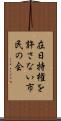 在日特権を
許さない市
民の会